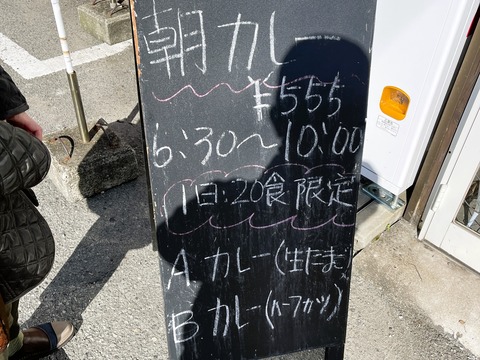 朝カレー
¥555
6:30〜10:00
1日:20食限定
Aカレー(生たまご)
Bカレー(ハーフカツ)